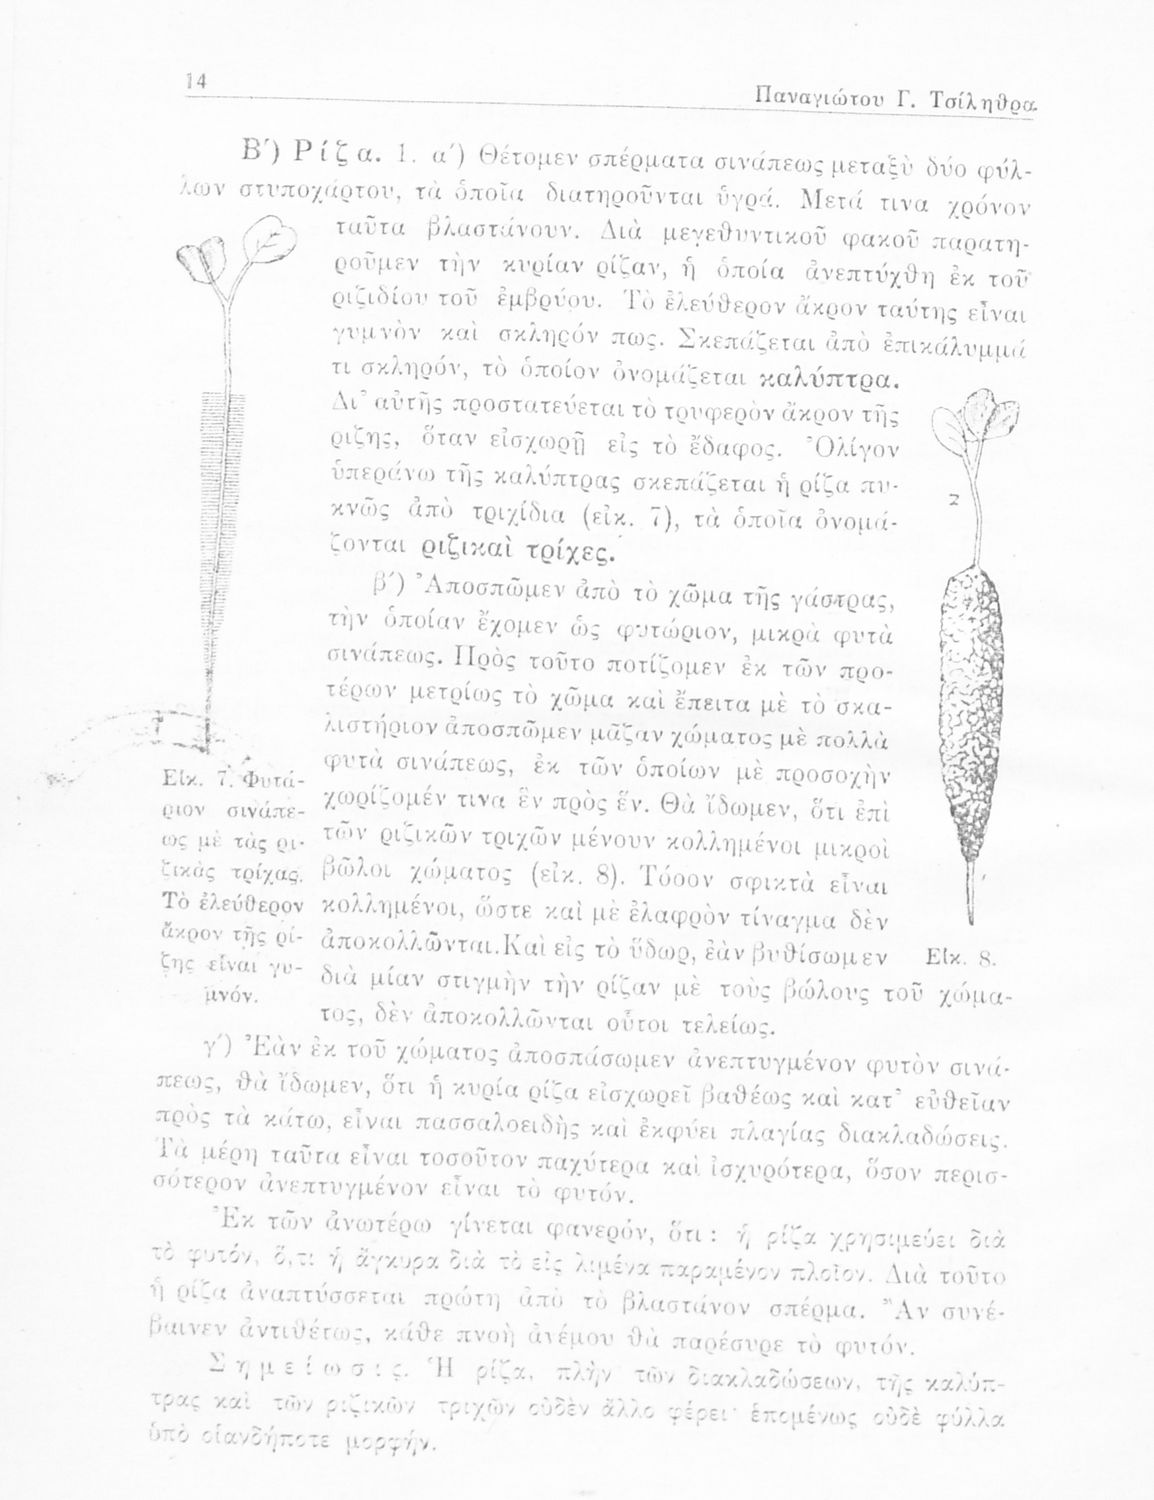 14
Παναγιώτου Γ. Τσίληθρα
Β') Ρίζα. 1. α') Θέτομεν σπέρματα σινάπεως μεταξὺ δύο φύλ-
λων στυποχάρτου, τὰ ὁποῖα διατηροῦνται ὑγρά. Μετά τινα χρόνον
ταῦτα βλαστάνουν. Διὰ μεγεθυντικοῦ φακοῦ παρατη-
ροῦμεν τὴν κυρίαν ρίζαν, ἡ ὁποία ἀνεπτύχθη ἐκ τοῦ
ριζιδίου τοῦ ἐμβρύου. Τὸ ἐλεύθερον ἄκρον ταύτης εἶναι
γυμνὸν καὶ σκληρόν πως. Σκεπάζεται ἀπὸ ἐπικάλυμμά
τι σκληρόν, τὸ ὁποίον ὀνομάζεται καλύπτρα.
Δι' αὐτῆς προστατεύεται τὸ τρυφερὸν ἄκρον τῆς
ριζης, ὅταν εἰσχωρῇ εἰς τὸ ἔδαφος. Ὀλίγον
ὑπεράνω τῆς καλύπτρας σκεπάζεται ἡ ρίζα πυ-
κνῶς ἀπὸ τριχίδια (εἰκ. 7), τὰ ὁποῖα ὀνομά-
ζονται ριζικαὶ τρίχες.
β') Ἀποσπῶμεν ἀπὸ τὸ χῶμα τῆς γάστρας,
τὴν ὁποίαν ἔχομεν ὡς φυτώριον, μικρὰ φυτὰ
σινάπεως. Πρὸς τοῦτο ποτίζομεν ἐκ τῶν προ-
τέρων μετρίως τὸ χῶμα καὶ ἔπειτα μὲ τὸ σκα-
λιστήριον ἀποσπῶμεν μᾶζαν χώματος μὲ πολλὰ
φυτὰ σινάπεως, ἐκ τῶν ὁποίων μὲ προσοχὴν
χωρίζομέν τινα ἓν πρὸς ἕν. Θὰ ἴδωμεν, ὅτι ἐπὶ
τῶν ριζικῶν τριχῶν μένουν κολλημένοι μικροὶ
βῶλοι χώματος (εἰκ. 8). Τόσον σφικτὰ εἶναι
κολλημένοι, ὥστε καὶ μὲ ἐλαφρὸν τίναγμα δὲν
ἀποκολλῶνται. Καὶ εἰς τὸ ὕδωρ, ἐὰν βυθίσωμεν
διὰ μίαν στιγμὴν τὴν ρίζαν μὲ τοὺς βώλους τοῦ χώμα-
τος, δὲν ἀποκολλῶνται οὗτοι τελείως.
2
Εἰκ. 7. Φυτά-
ριον σινάπε-
ως μὲ τὰς ρι-
ζικὰς τρίχας.
Τὸ ἐλεύθερον
ἄκρον τῆς ρί-
ζης εἶναι γυ-
μνόν.
Εἰκ. 8.
γ') Ἐὰν ἐκ τοῦ χώματος ἀποσπάσωμεν ἀνεπτυγμένον φυτὸν σινά-
πεως, θὰ ἴδωμεν, ὅτι ἡ κυρία ρίζα εἰσχωρεῖ βαθέως καὶ κατ' εὐθεῖαν
πρὸς τὰ κάτω, εἶναι πασσαλοειδὴς καὶ ἐκφύει πλαγίας διακλαδώσεις.
Τὰ μέρη ταῦτα εἶναι τοσοῦτον παχύτερα καὶ ἰσχυρότερα, ὅσον περισ-
σότερον ἀνεπτυγμένον εἶναι τὸ φυτόν.
Ἐκ τῶν ἀνωτέρω γίνεται φανερόν, ὅτι : ἡ ρίζα χρησιμεύει διὰ
τὸ φυτόν, ὅ,τι ἡ ἄγκυρα διὰ τὸ εἰς λιμένα παραμένον πλοῖον. Διὰ τοῦτο
ἡ ρίζα ἀναπτύσσεται πρώτη ἀπὸ τὸ βλαστάνον σπέρμα. Ἂν συνέ-
βαινεν ἀντιθέτως, κάθε πνοὴ ἀνέμου θὰ παρέσυρε τὸ φυτόν.
Σημείωσις. Ἡ ρίζα, πλὴν τῶν διακλαδώσεων, τῆς καλύπ-
τρας καὶ τῶν ριζικῶν τριχῶν οὐδὲν ἄλλο φέρει· ἑπομένως οὐδὲ φύλλα
ὑπὸ οἱανδήποτε μορφήν.